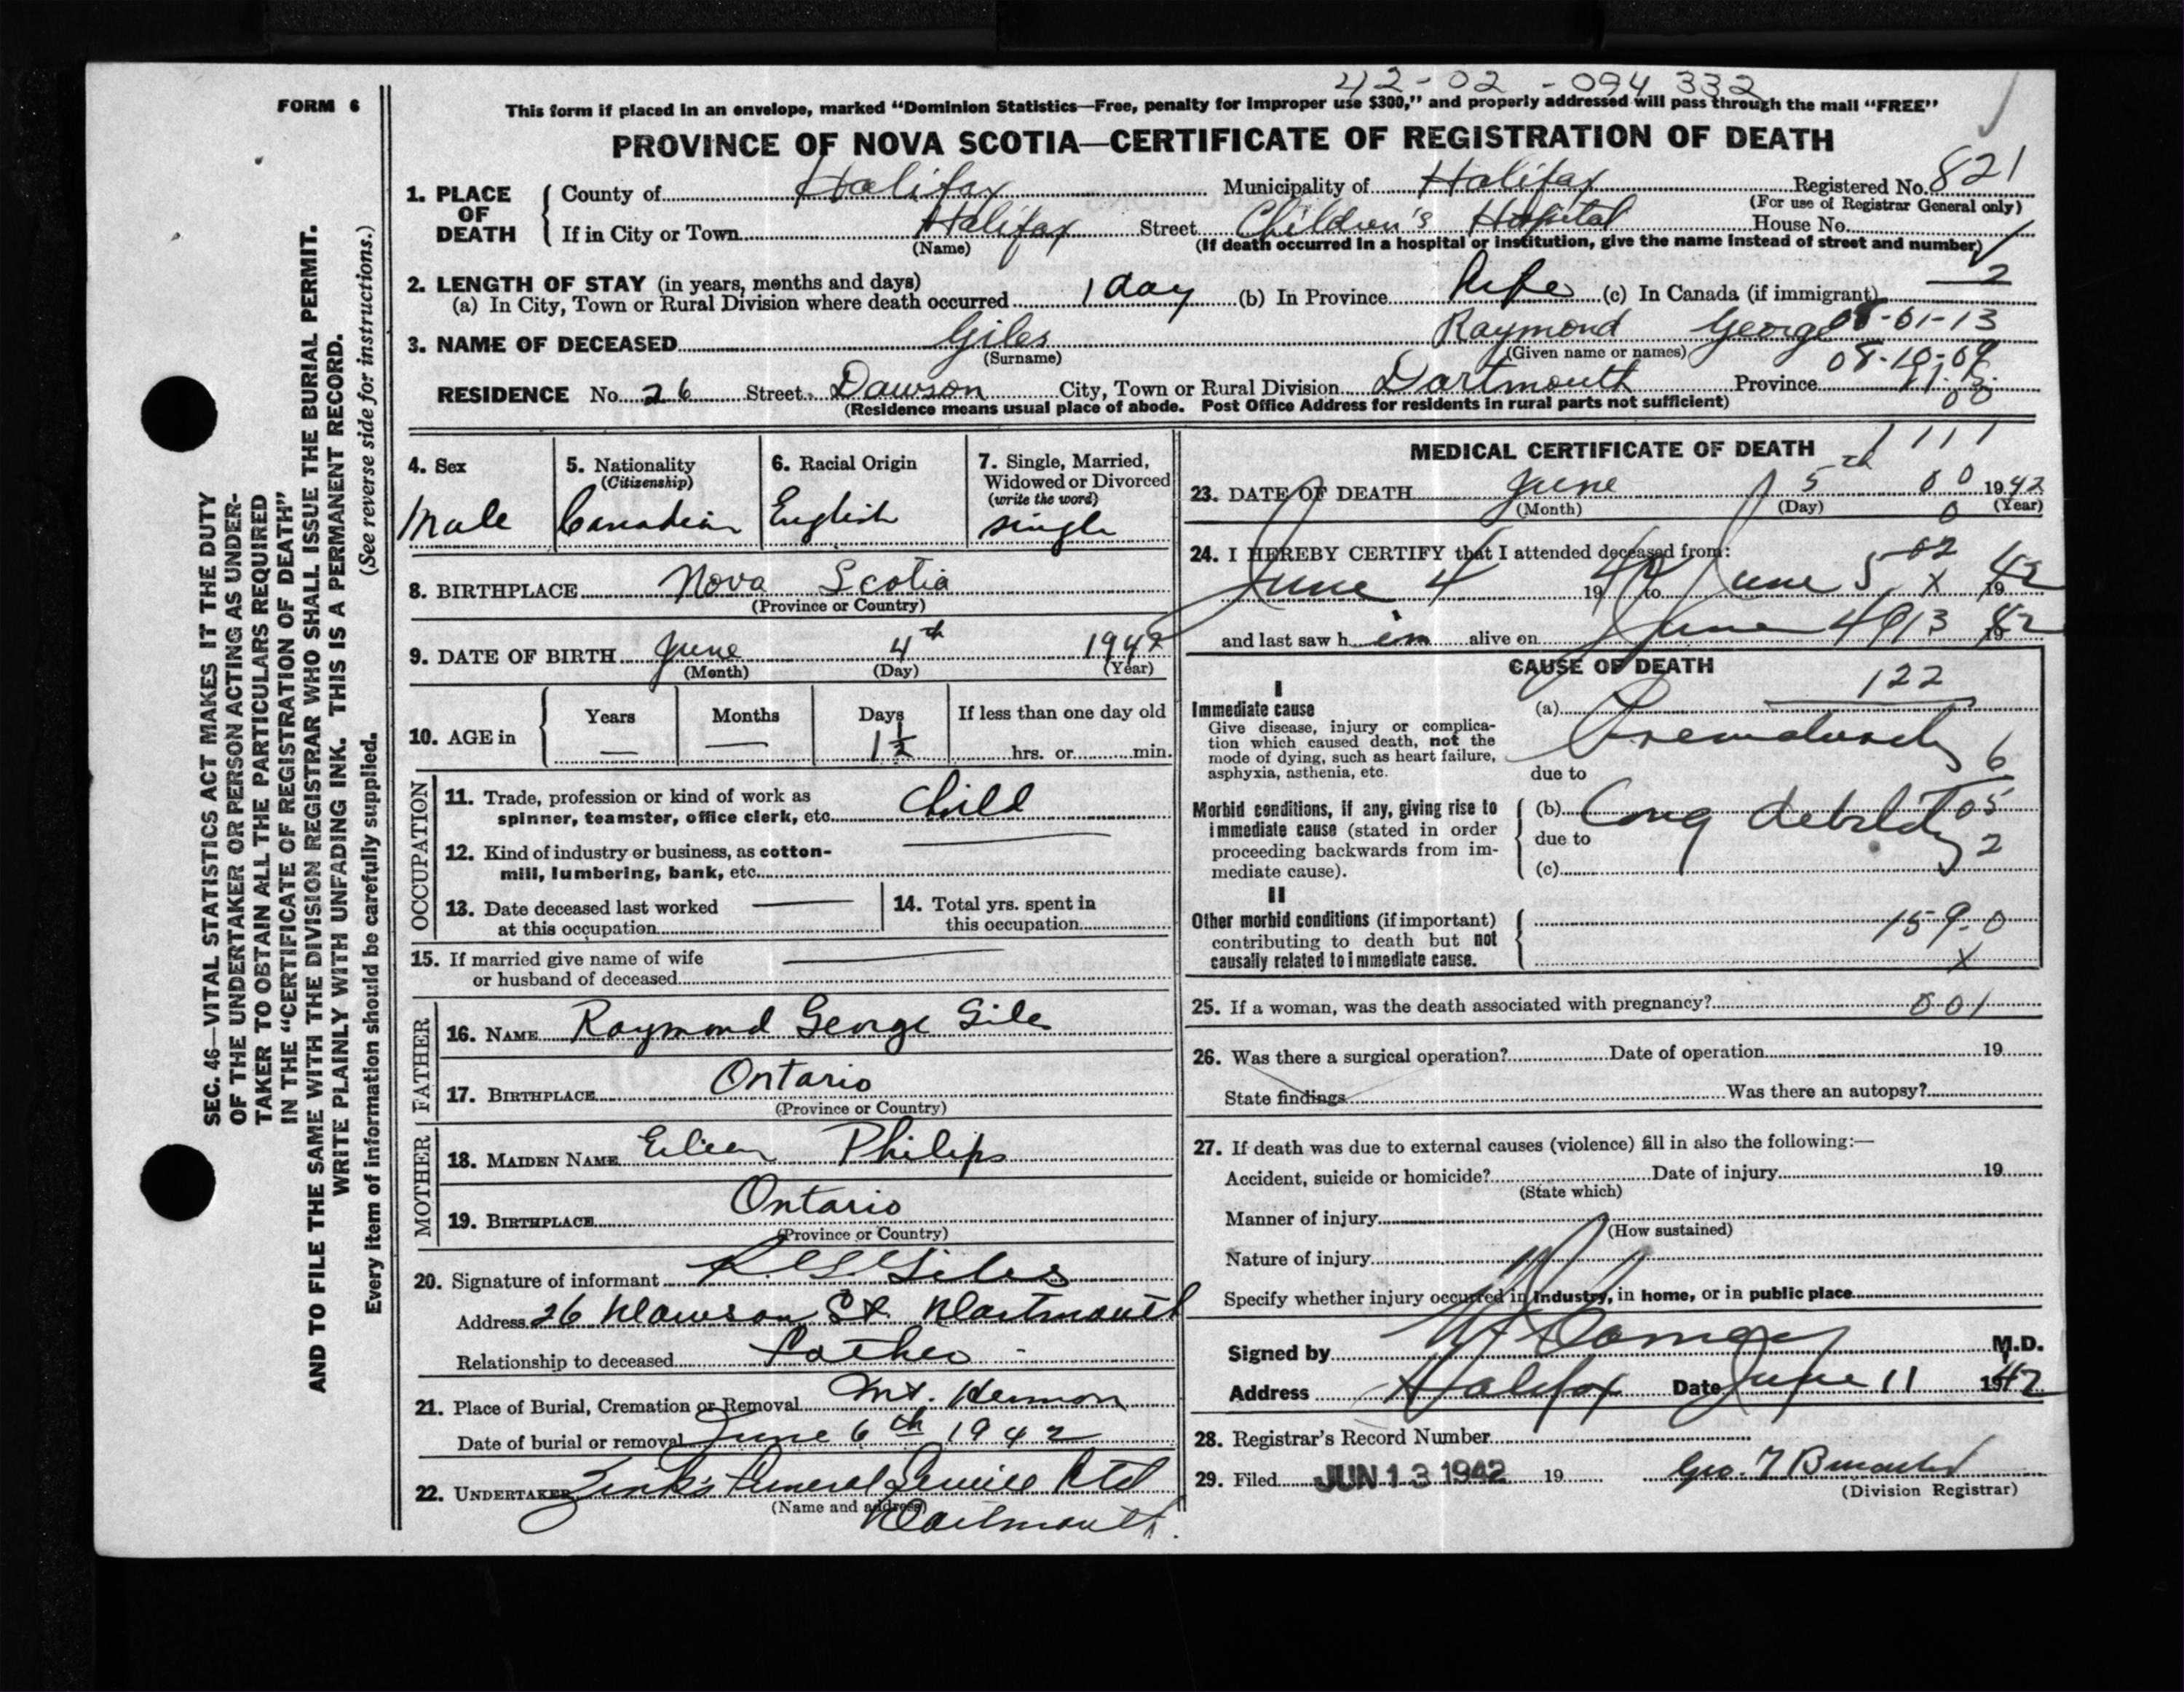 42-02-094 332
FORM 6
This form if placed in an envelope, marked “Dominion Statistics—Free, penalty for improper use $300,” and properly addressed will pass through the mail “FREE”
PROVINCE OF NOVA SCOTIA—CERTIFICATE OF REGISTRATION OF DEATH
1. PLACE OF DEATH
County of Halifax Municipality of Halifax Registered No. 821
(For use of Registrar General only)
If in City or Town Halifax Street Children's Hospital House No.
(Name) (If death occurred in a hospital or institution, give the name instead of street and number)
2. LENGTH OF STAY (in years, months and days) 2
(a) In City, Town or Rural Division where death occurred 1 day (b) In Province Life (c) In Canada (if immigrant)
3. NAME OF DECEASED Giles Raymond George 08-01-13
(Surname) (Given name or names) 08-10-09
RESIDENCE No. 26 Street Dawson City, Town or Rural Division Dartmouth Province N.S.
(Residence means usual place of abode. Post Office Address for residents in rural parts not sufficient) 00
4. Sex Male
5. Nationality (Citizenship) Canadian
6. Racial Origin English
7. Single, Married, Widowed or Divorced (write the word) single
8. BIRTHPLACE Nova Scotia
(Province or Country)
9. DATE OF BIRTH June 4th 1942
(Month) (Day) (Year)
10. AGE in Years — Months — Days 1½ If less than one day old hrs. or min.
OCCUPATION
11. Trade, profession or kind of work as
spinner, teamster, office clerk, etc. Child
12. Kind of industry or business, as cotton-
mill, lumbering, bank, etc.
13. Date deceased last worked
at this occupation
14. Total yrs. spent in
this occupation
15. If married give name of wife
or husband of deceased
FATHER
16. NAME Raymond George Giles
17. BIRTHPLACE Ontario
(Province or Country)
MOTHER
18. MAIDEN NAME Eileen Philips
19. BIRTHPLACE Ontario
(Province or Country)
20. Signature of informant R. G. Giles
Address 26 Dawson St. Dartmouth
Relationship to deceased Father
21. Place of Burial, Cremation or Removal Mt. Hermon
Date of burial or removal June 6th 1942
22. UNDERTAKER Zink's Funeral Service Ltd
(Name and address) Dartmouth.
MEDICAL CERTIFICATE OF DEATH 1111
23. DATE OF DEATH June 5th 00 1942
(Month) (Day) 0 (Year)
24. I HEREBY CERTIFY that I attended deceased from: 02
June 4 1942 to June 5 x 1942
and last saw him alive on June 4 913 1942
CAUSE OF DEATH
122
I
Immediate cause
Give disease, injury or complica-
tion which caused death, not the
mode of dying, such as heart failure,
asphyxia, asthenia, etc.
(a) Prematurity 6
due to
Morbid conditions, if any, giving rise to
immediate cause (stated in order
proceeding backwards from im-
mediate cause).
(b) Cong debility 05
due to 2
(c)
II
Other morbid conditions (if important)
contributing to death but not
causally related to immediate cause.
159-0
x
25. If a woman, was the death associated with pregnancy? 001
26. Was there a surgical operation? Date of operation 19
State findings Was there an autopsy?
27. If death was due to external causes (violence) fill in also the following:—
Accident, suicide or homicide? Date of injury 19
(State which)
Manner of injury
(How sustained)
Nature of injury
Specify whether injury occurred in Industry, in home, or in public place
Signed by M.D.
Address Halifax Date June 11 1942
28. Registrar's Record Number
29. Filed JUN 13 1942 19 Geo. T
(Division Registrar)
SEC. 46—VITAL STATISTICS ACT MAKES IT THE DUTY
OF THE UNDERTAKER OR PERSON ACTING AS UNDER-
TAKER TO OBTAIN ALL THE PARTICULARS REQUIRED
IN THE “CERTIFICATE OF REGISTRATION OF DEATH”
AND TO FILE THE SAME WITH THE DIVISION REGISTRAR WHO SHALL ISSUE THE BURIAL PERMIT.
WRITE PLAINLY WITH UNFADING INK. THIS IS A PERMANENT RECORD.
(See reverse side for instructions.)
Every item of information should be carefully supplied.